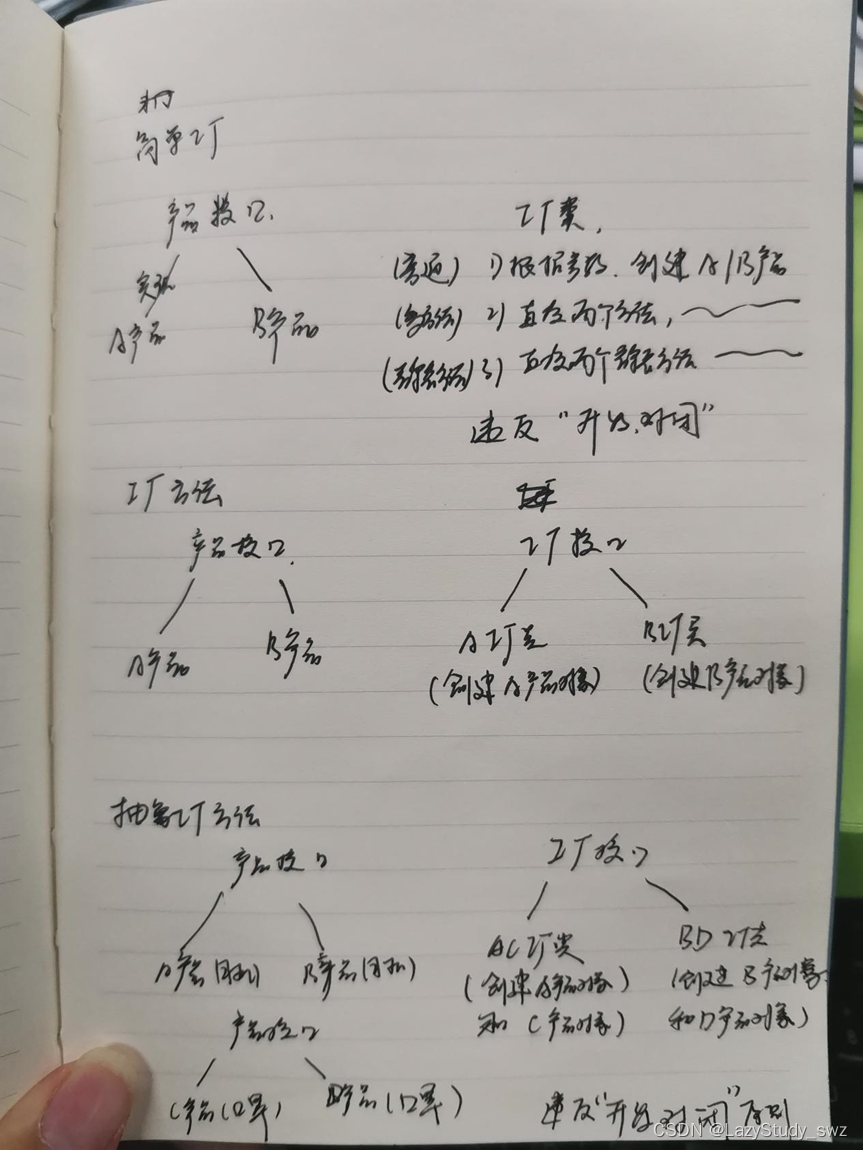 简单工厂
产品接口.
实现
A产品 B产品
工厂类,
(普通) 1) 根据参数. 创建 A/B产品
(多方法) 2) 直接两个方法,
(静态方法) 3) 直接两个静态方法
违反 "开放,对闭"
工厂方法
产品接口. 工厂接口
A产品 B产品 A工厂类 B工厂类
(创建A产品对象) (创建B产品对象)
抽象工厂方法
产品接口 工厂接口
A产品(手机) B产品(手机) AC工厂类 BD工厂类
(创建A产品对象 (创建 B产品对象
和 C产品对象) 和D产品对象)
产品接口
C产品(口罩) D产品(口罩) 违反"开放 对闭"原则
CSDN @LazyStudy_swz